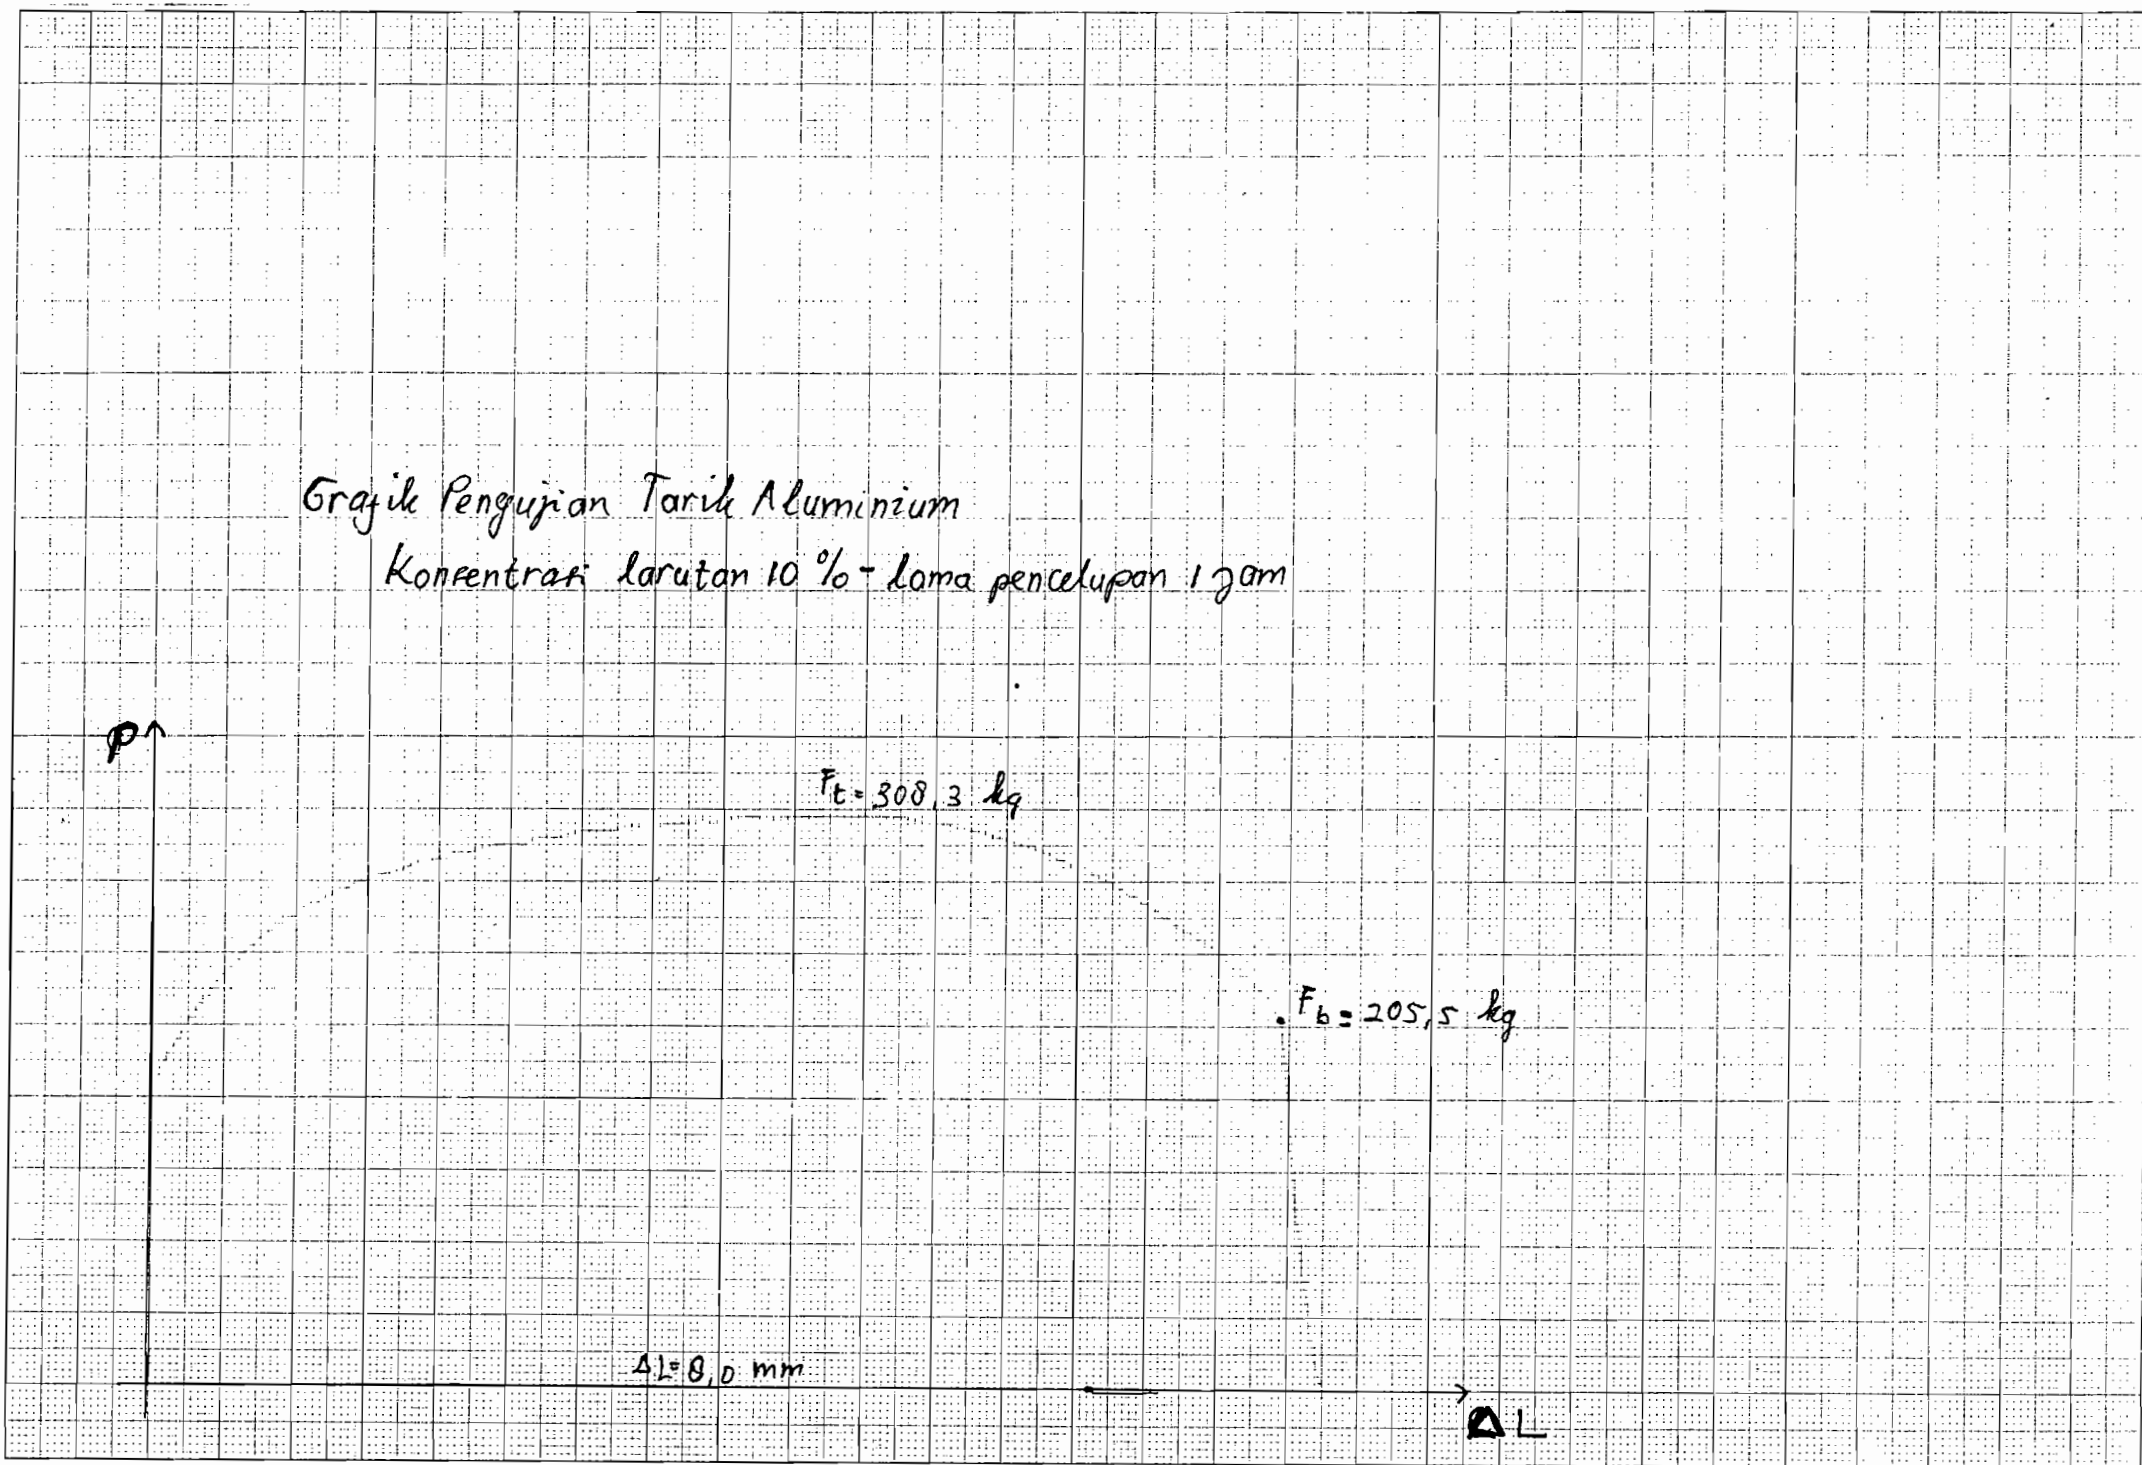 Grafik Pengujian Tarik Aluminium
Konsentrasi larutan 10 % - lama pencelupan 1 jam
P
Ft = 308,3 kg
Fb = 205,5 kg
ΔL = 8,0 mm
ΔL